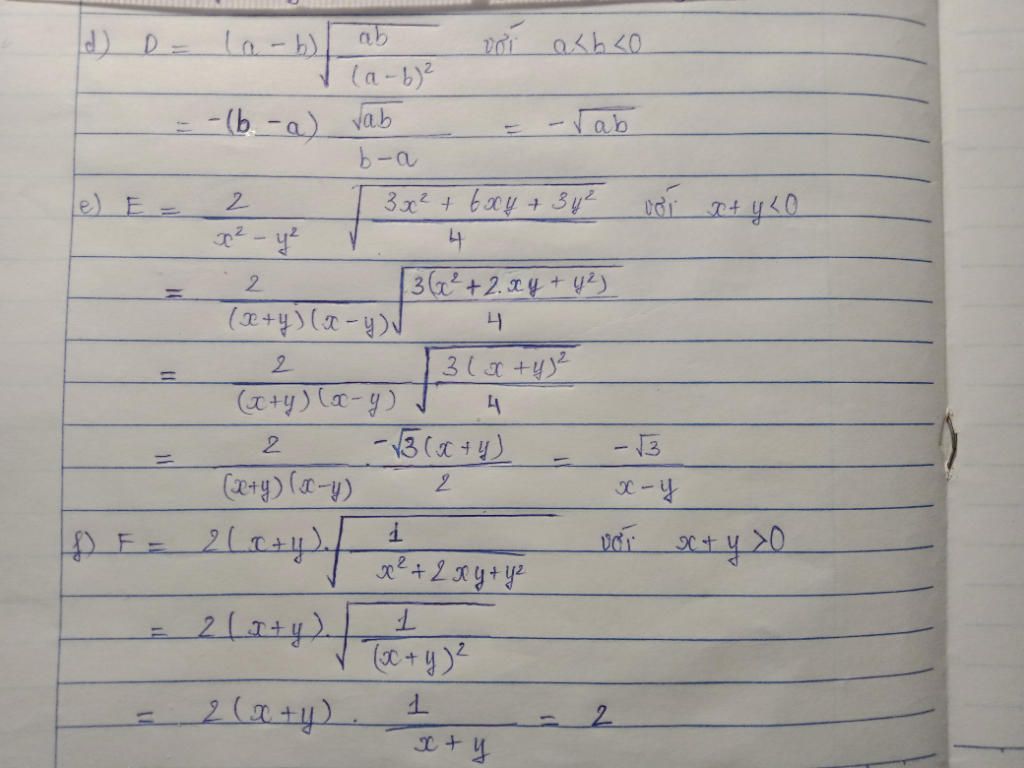 d) D = (a - b) √(ab/(a-b)²) với a<b<0
= -(b - a) √ab/(b-a) = -√ab
e) E = 2/(x² - y²) √((3x² + 6xy + 3y²)/4) với x+y<0
= 2/((x+y)(x-y)) √(3(x²+2.xy+y²)/4)
= 2/((x+y)(x-y)) √(3(x+y)²/4)
= 2/((x+y)(x-y)) . -√3(x+y)/2 = -√3/(x-y)
f) F = 2(x+y).√(1/(x²+2xy+y²)) với x+y>0
= 2(x+y).√(1/(x+y)²)
= 2(x+y) . 1/(x+y) = 2